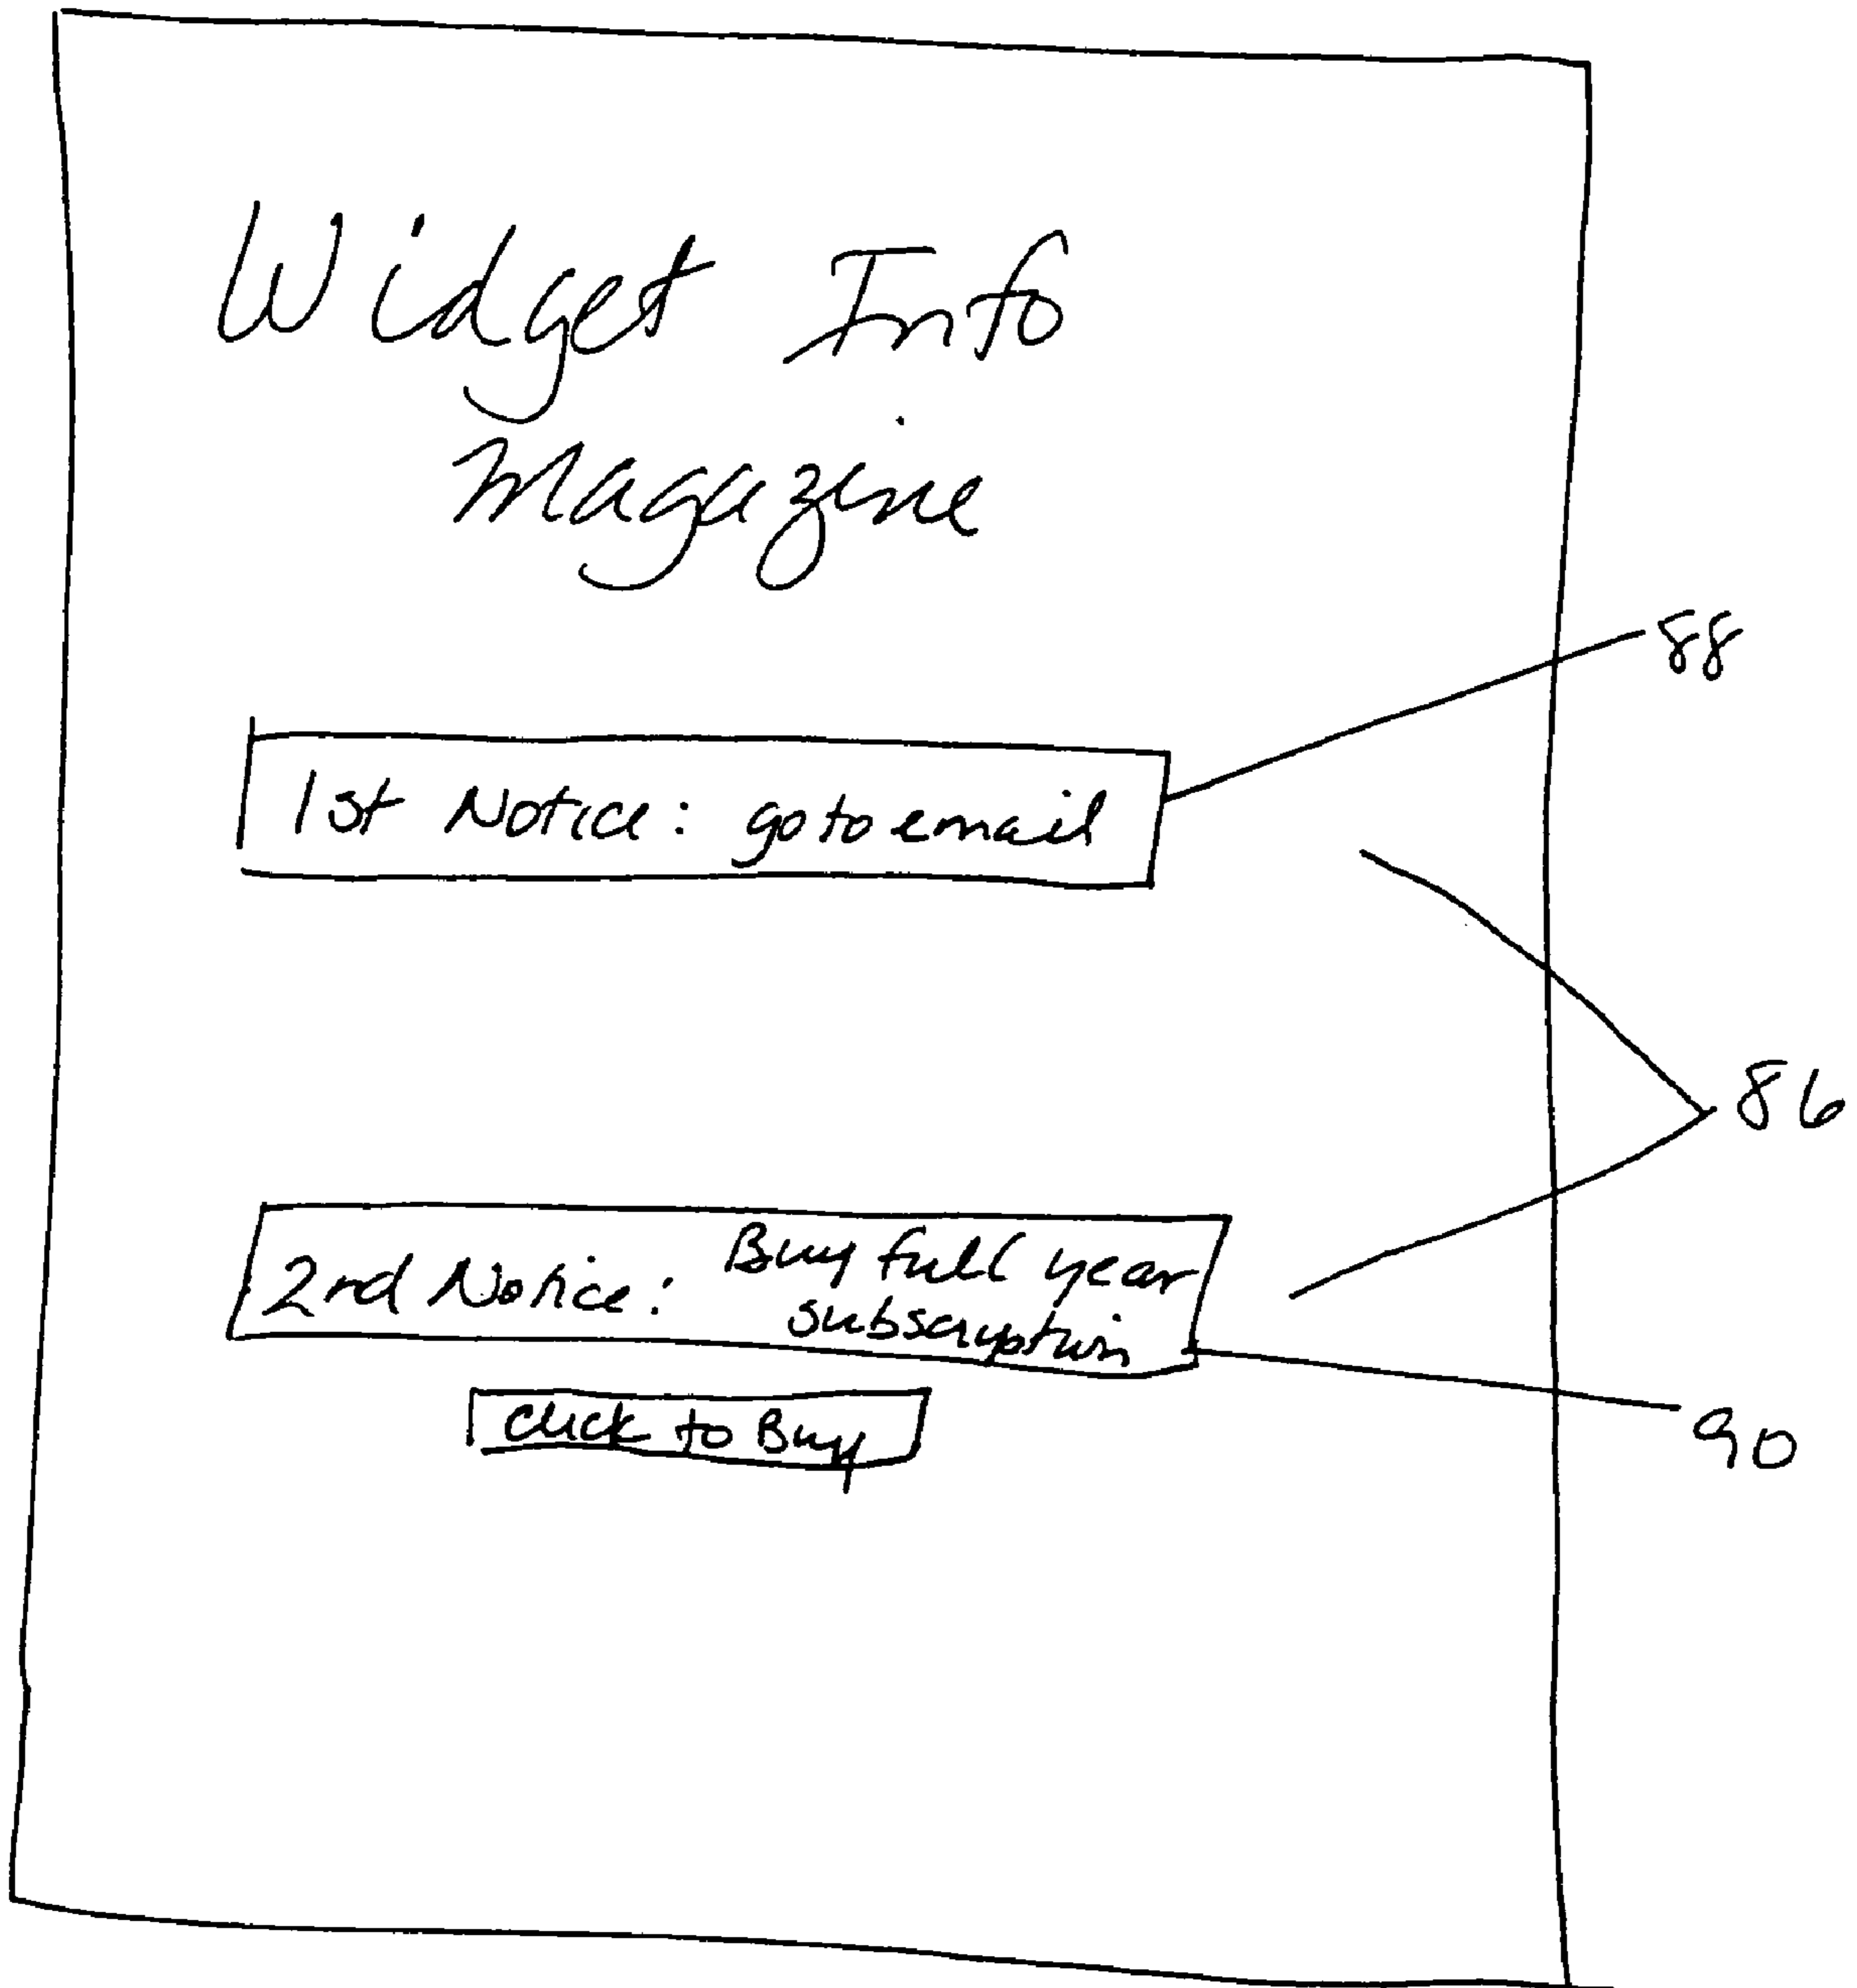 Widget Info
Magazine
88
1st Notice: go to email
86
2nd Notice: Buy full year
subscription
Click to Buy
90